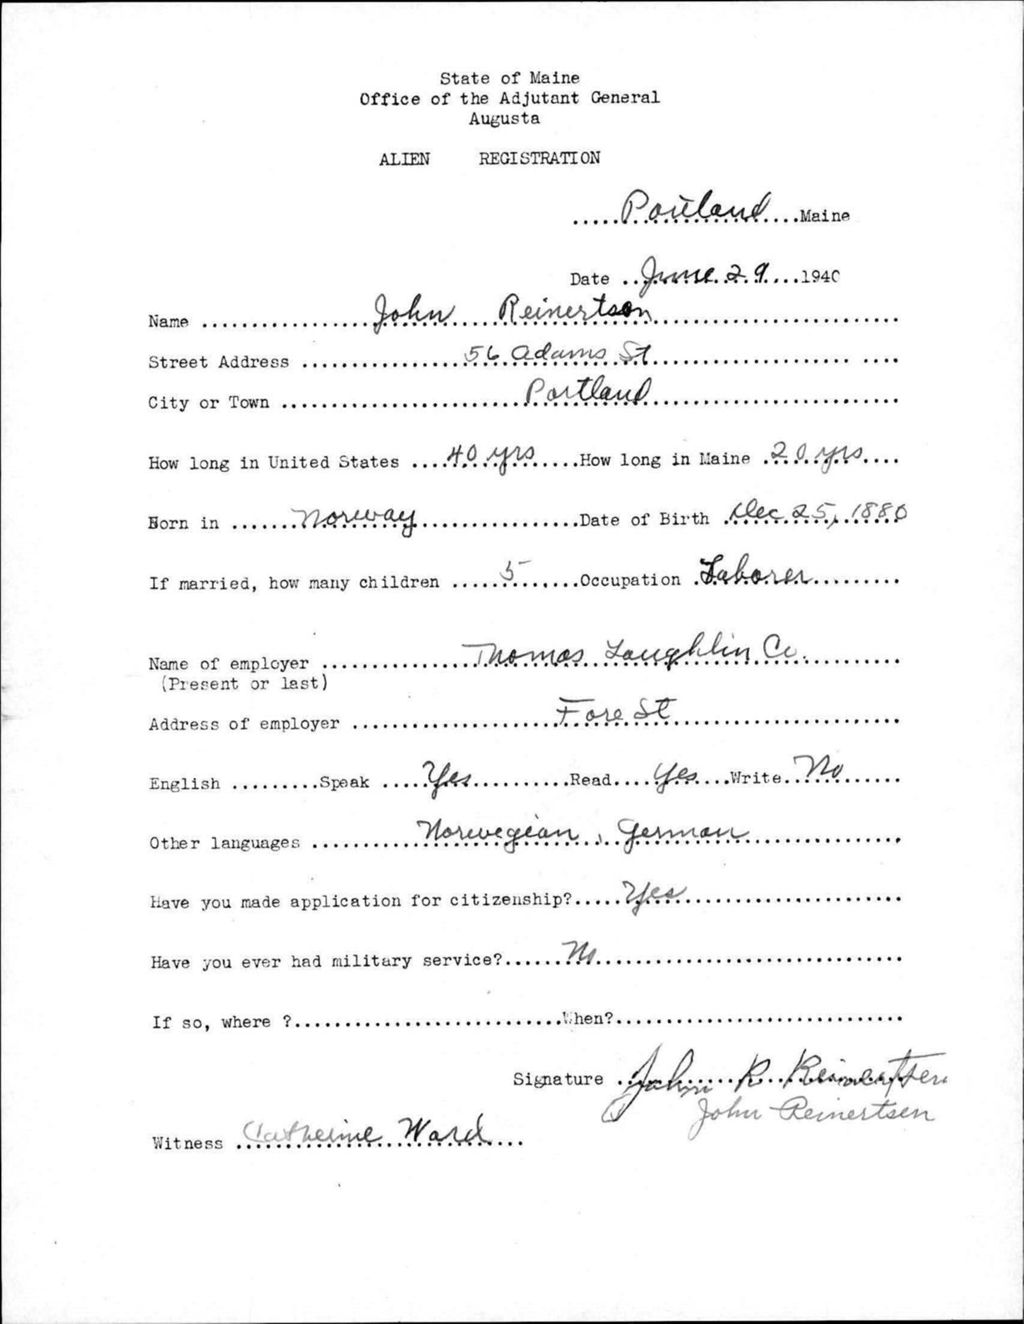 State of Maine
Office of the Adjutant General
Augusta
ALIEN REGISTRATION
.....Portland....Maine
Date ..June 29....1940
Name .................John Reinertson.........................
Street Address ................56 Adams St.................... ....
City or Town ........................Portland.........................
How long in United States ....40 yrs.....How long in Maine .20 yrs....
Born in .......Norway................Date of Birth .Dec 25, 1880
If married, how many children .....5.......Occupation .Laborer.........
Name of employer ...............Thomas Laughlin Co...........
(Present or last)
Address of employer ....................Fore St.......................
English .........Speak .....Yes..........Read....Yes....Write..No......
Other languages ...........Norwegian, German................
Have you made application for citizenship?.....Yes......................
Have you ever had military service?......No...............................
If so, where ?...........................When?.............................
Signature .John R. Reinertsen
John Reinertsen
Witness .Catherine Ward....